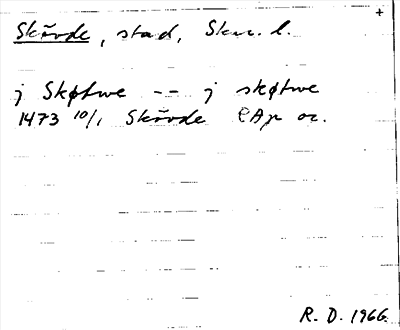 Skövde, stad, Skar. l.
+
j Skøtwe -- j skøtwe
1473 10/1 Skövde RAp or.
R. D. 1966.